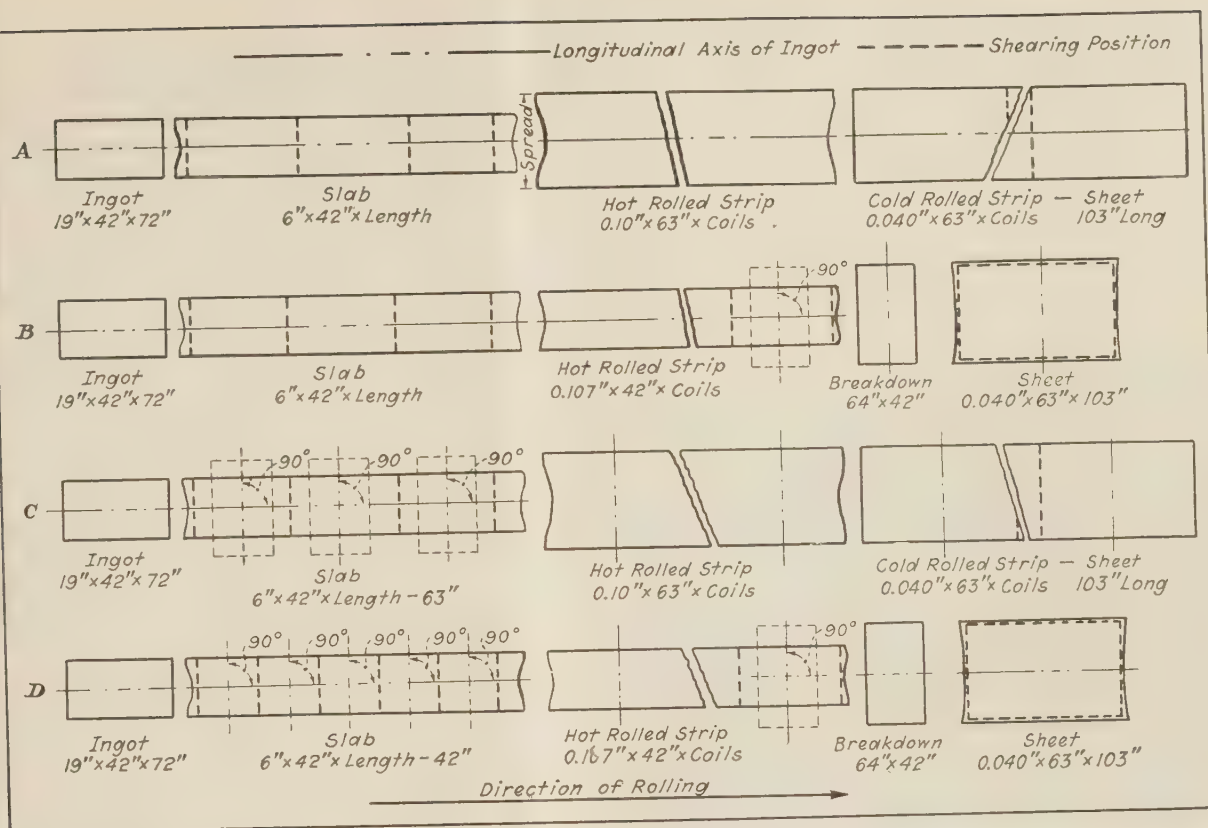 Longitudinal Axis of Ingot Shearing Position
A
Spread
Ingot
19"×42"×72"
Slab
6"×42"×Length
Hot Rolled Strip
0.10"×63"×Coils
Cold Rolled Strip — Sheet
0.040"×63"×Coils 103" Long
B
90°
Ingot
19"×42"×72"
Slab
6"×42"×Length
Hot Rolled Strip
0.107"×42"×Coils
Breakdown
64"×42"
Sheet
0.040"×63"×103"
C
90° 90° 90°
Ingot
19"×42"×72"
Slab
6"×42"×Length-63"
Hot Rolled Strip
0.10"×63"×Coils
Cold Rolled Strip — Sheet
0.040"×63"×Coils 103" Long
D
90° 90° 90° 90° 90° 90°
Ingot
19"×42"×72"
Slab
6"×42"×Length-42"
Hot Rolled Strip
0.167"×42"×Coils
Breakdown
64"×42"
Sheet
0.040"×63"×103"
Direction of Rolling